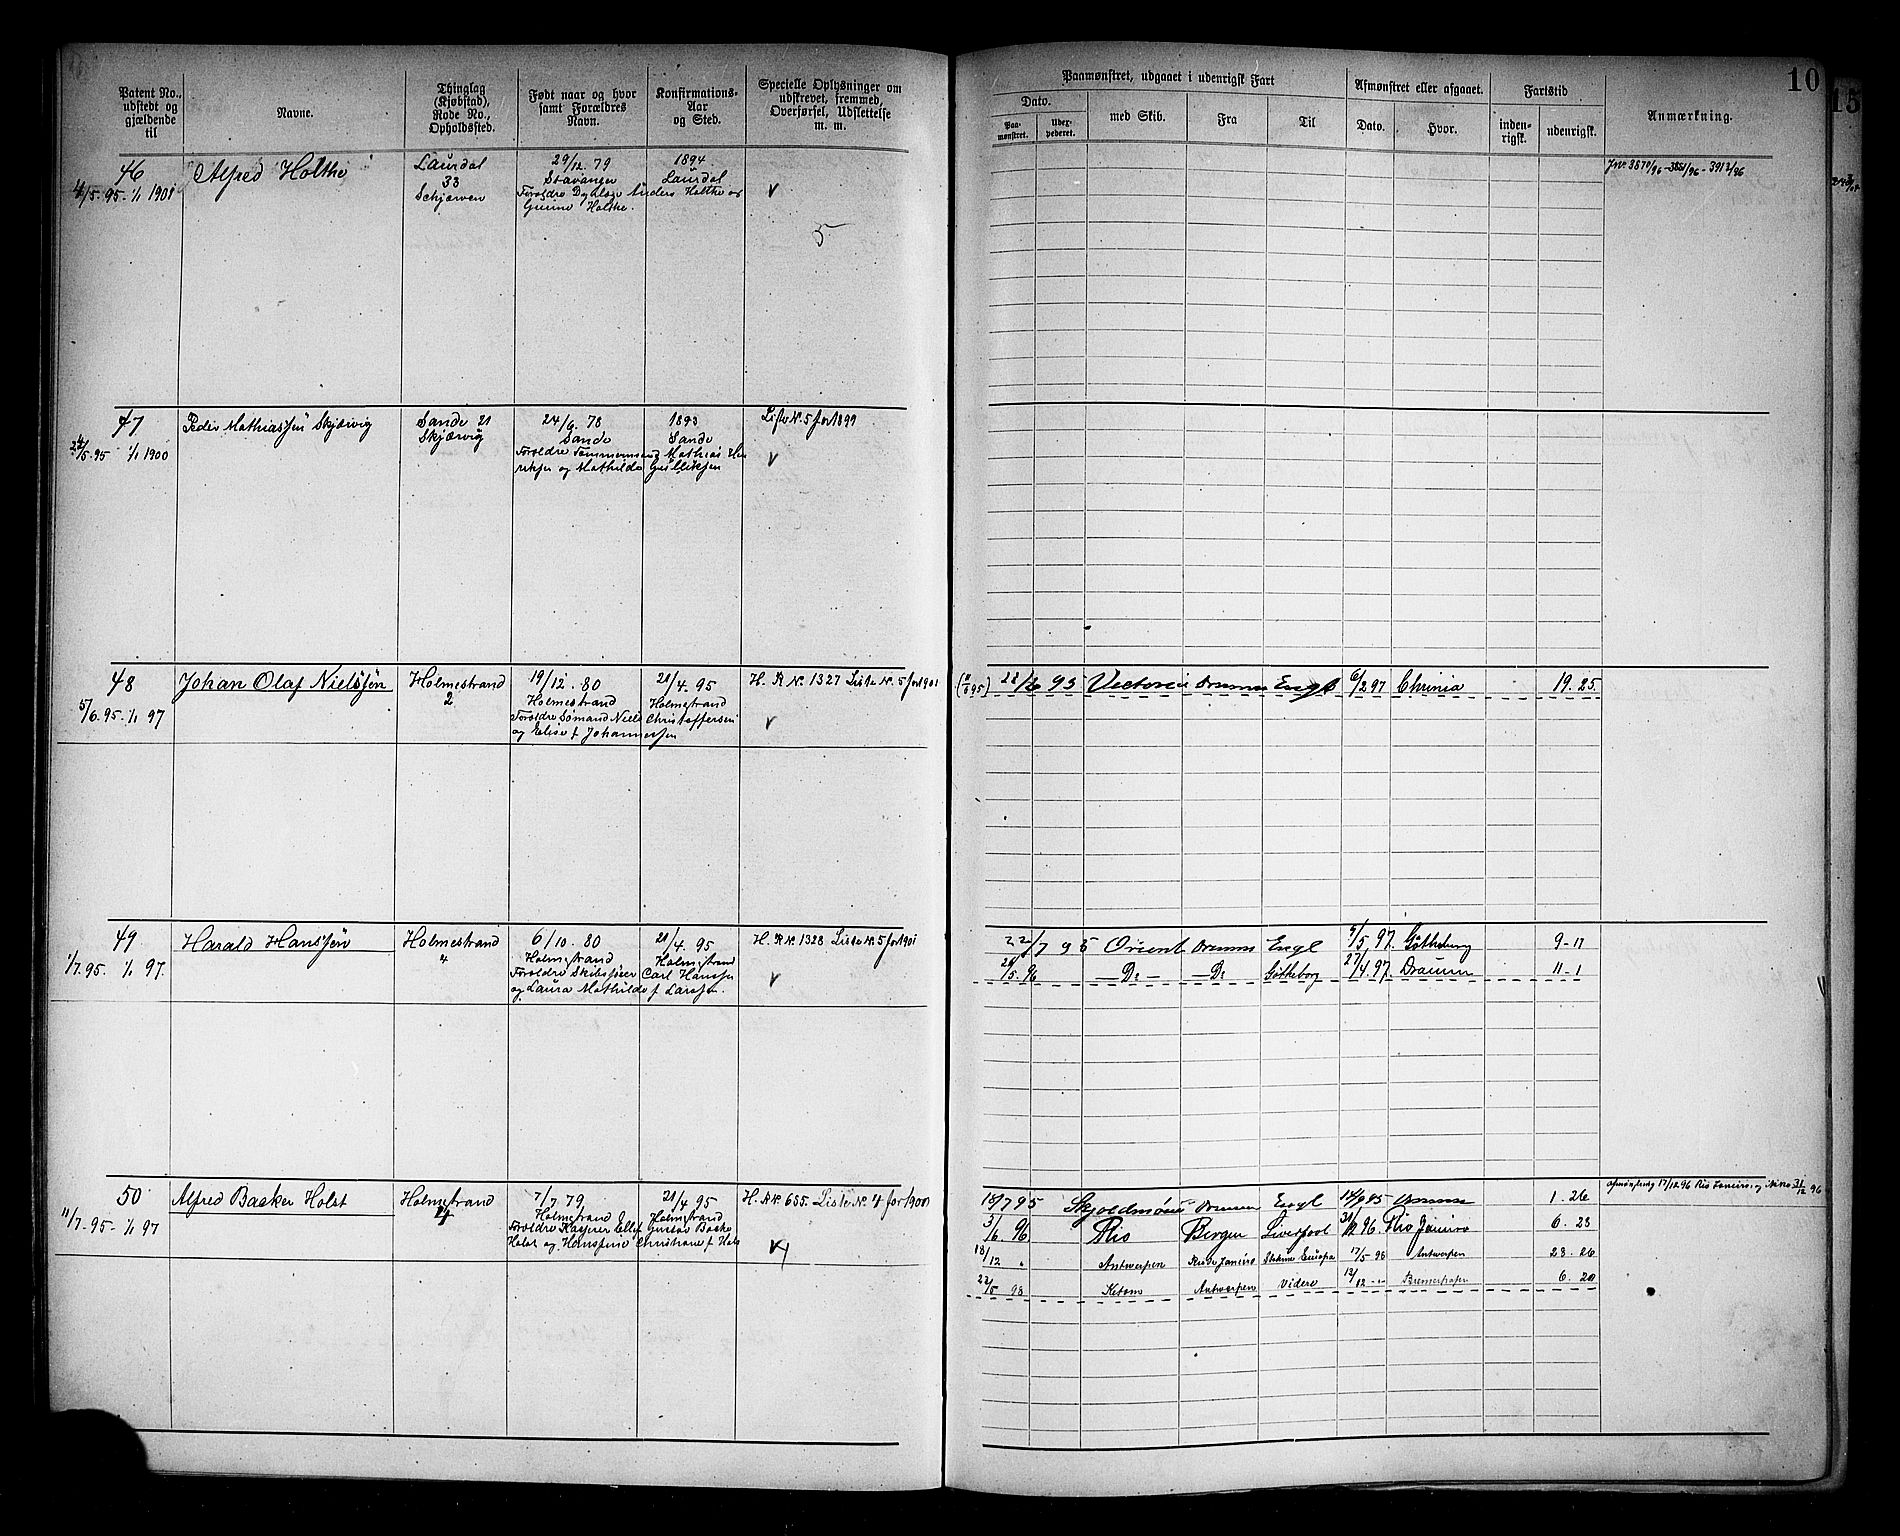 10
15
Patent No., udstedt og gjældende til
Navne.
Thinglag (Kjøbstad), Rode No., Opholdssted.
Født naar og hvor samt Forældres Navn.
Konfirmations-Aar og Sted.
Specielle Oplysninger om udskrevet, fremmed, Overførsel, Udslettelse m. m.
Paamønstret, udgaaet i udenrigsk Fart
Dato.
Paa-mønstret.
Uder-pederet.
med Skib.
Fra
Til
Afmønstret eller afgaaet.
Dato.
Hvor.
Fartstid
inden-rigsk.
udenrigsk.
Anmærkning.
46
4/5-95-1/1 1901
Alfred Holthe
Laurdal
33
Schjærven
29/12 79
Stavanger
Forældre Anders Holthe og
Gurine Holthe.
1894
Laurdal
5
Jnr. 3870/96 - 3881/96 - 3913/96
47
24/5-95 1/1 1900
Peder Mathiassen Skjærvig
Sande 21
Skjærvig
24/6. 78
Sande
Forældre Tømmermand Mathias Hen
riksen og Mathilde Gulliksen
1893
Sande
Liste N. 5 for 1899
48
5/6.95-1/1 97
Johan Olaf Nielssen
Holmestrand
2
19/12. 80
Holmestrand
Forældre Sømand Niels Christoffersen
og Elise f Johannessen
21/4. 95
Holmestrand
H. R N. 1327 Liste N. 5 for 1901
22/6 95 Victoria Dramm Engl 6/2 97 Chrinia 19. 25.
49
1/7.95. 1/1 97.
Harald Hanssen
Holmestrand
4
6/10. 80
Holmestrand
Forældre Skibsfører Carl Hanssen
og Laura Mathilde f Larssen.
21/4. 95
Holmestrand
H. R N. 1328 Liste N. 5 for 1901
22/7 95 Orient Dramm Engl 9/5. 97. Gøtheborg 9-17
29/5. 96 -Do- -Do- Gøtheborg 27/4. 97. Dramm 11-1
50
11/7.95-1/1 97
Alfred Backer Holst
Holmestrand
4
7/7 79
Holmestrand
Forældre Kasserer Ellef Gustav Backe
Holst og Hansine Christiane f Hals
21/4 95
Holmestrand
H. R N. 655. Liste N. 4 for 1900
15/7 95 Skjoldmøen Dramm Engl 14/9 85 Dramm 1. 26
3/6 96 Rio Bergen Liverpool 31/12 96. Rio Janeiro 6. 28
18/12 " Antwerpen Rio de Janeiro Europa 17/5 98 Antwerpen 28. 26
22/5 98 Antwerpen Videre 12/12 -"- Bremerhafen 6. 20
Afmønstring 17/12 96 Rio Janeiro, og ikke 31/12 96